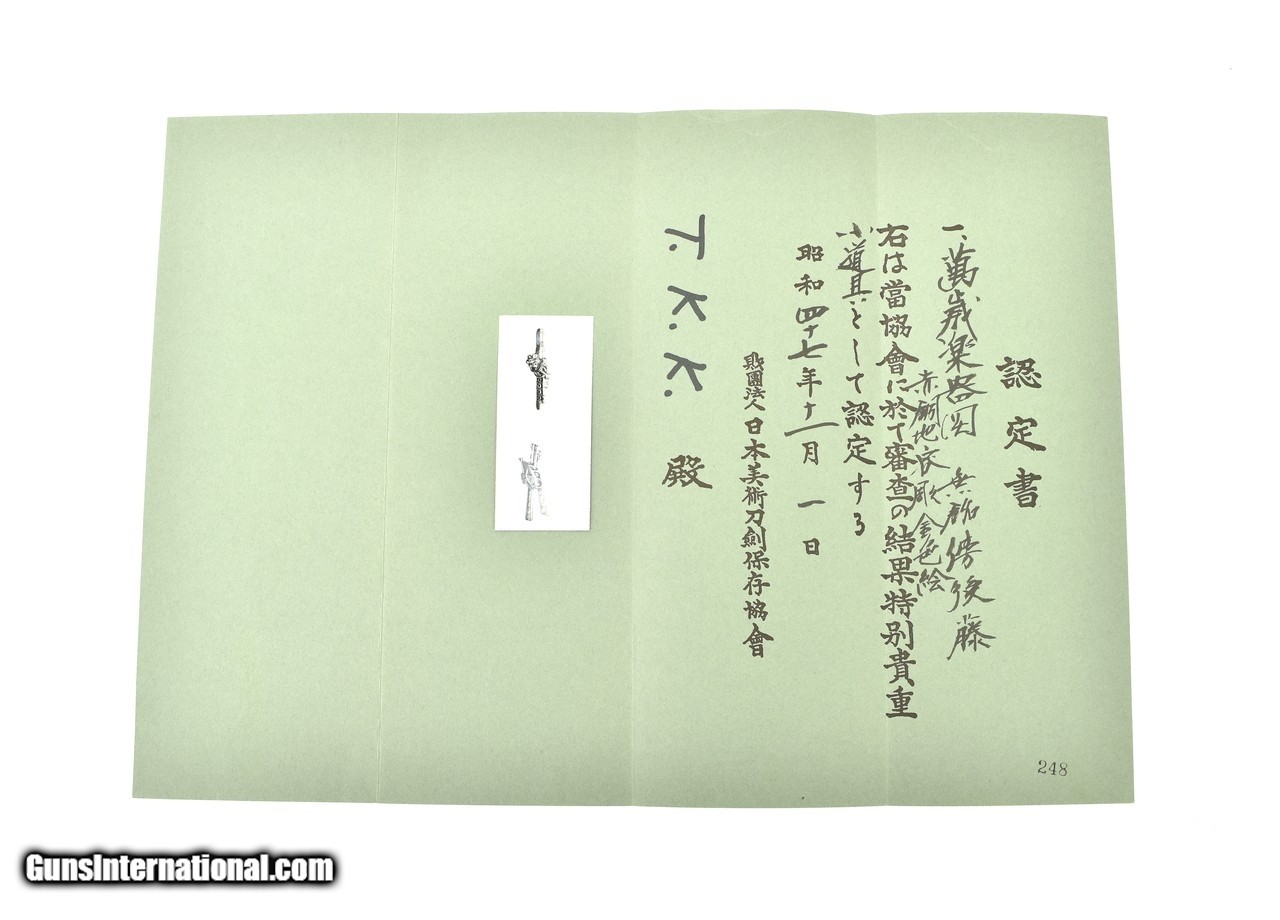 認定書
一、萬歳楽器図 無銘 傳後藤
赤銅地容彫金色絵
右は當協會に於て審査の結果特別貴重
小道具として認定する
昭和四十七年十一月一日
財團法人日本美術刀劍保存協會
T. K. K. 殿
248
GunsInternational.com